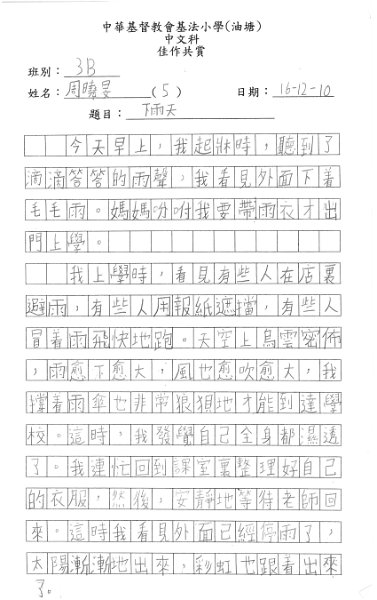 中華基督教會基法小學(油塘)
中文科
佳作共賞
班別：3B
姓名：周曉旻(5) 日期：16-12-10
題目：下雨天
今天早上，我起牀時，聽到了
滴滴答答的雨聲，我看見外面下着
毛毛雨。媽媽吩咐我要帶雨衣才出
門上學。
我上學時，看見有些人在店裏
避雨，有些人用報紙遮擋，有些人
冒着雨飛快地跑。天空上烏雲密佈
，雨愈下愈大，風也愈吹愈大，我
撐着雨傘也非常狼狽地才能到達學
校。這時，我發覺自己全身都濕透
了。我連忙回到課室裏整理好自己
的衣服，然後，安靜地等待老師回
來。這時我看見外面已經停雨了，
太陽漸漸地出來，彩虹也跟着出來
了。